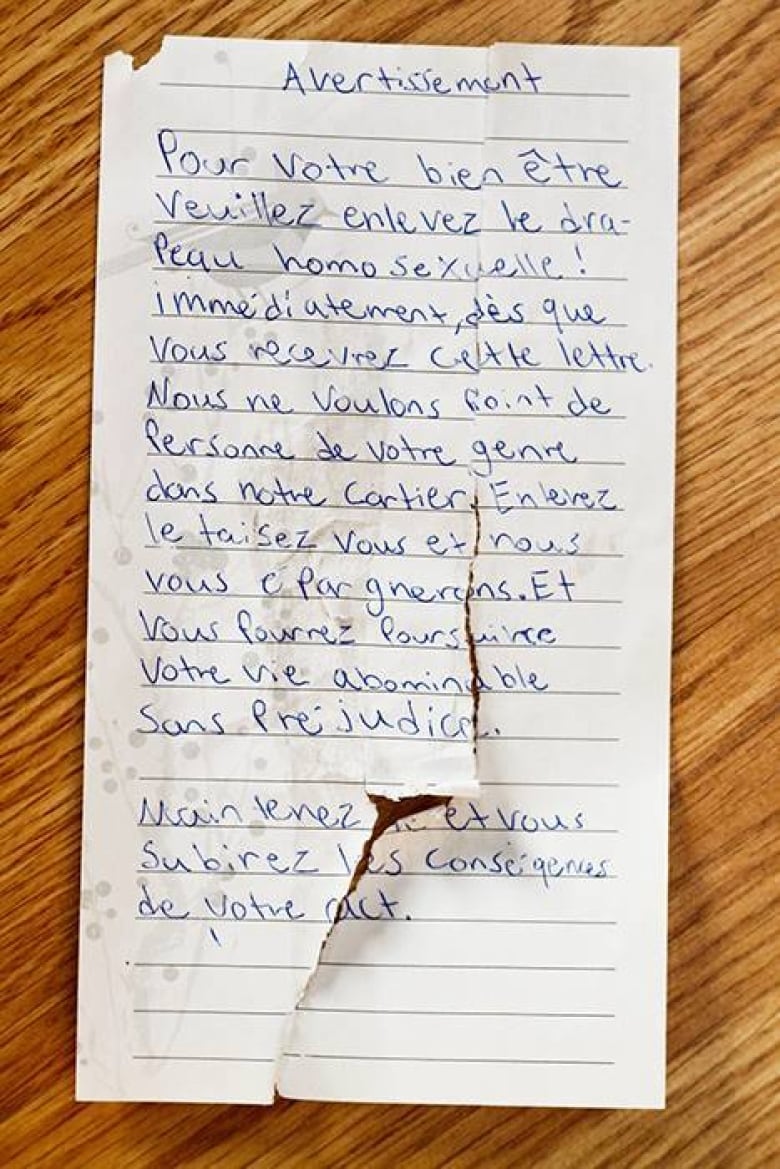 Avertissement
Pour votre bien être
Veuillez enlevez le dra-
peau homosexuelle !
immédiatement, dès que
vous recevrez cette lettre.
Nous ne voulons point de
personne de votre genre
dans notre cartier. Enlevez
le taisez vous et nous
vous épargnerons. Et
vous pourrez poursuivre
votre vie abominable
sans préjudice.
Maintenez et vous
subirez les conséqences
de votre act.